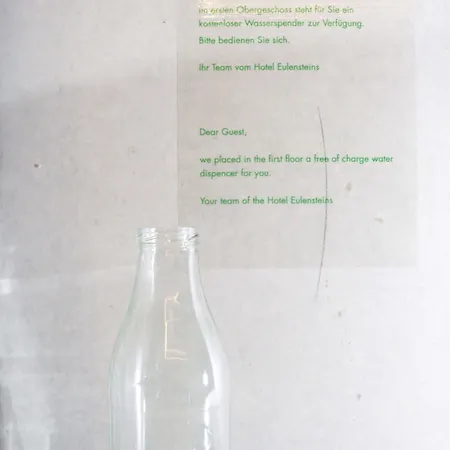 im ersten Obergeschoss steht für Sie ein
kostenloser Wasserspender zur Verfügung.
Bitte bedienen Sie sich.
Ihr Team vom Hotel Eulensteins
Dear Guest,
we placed in the first floor a free of charge water
dispencer for you.
Your team of the Hotel Eulensteins